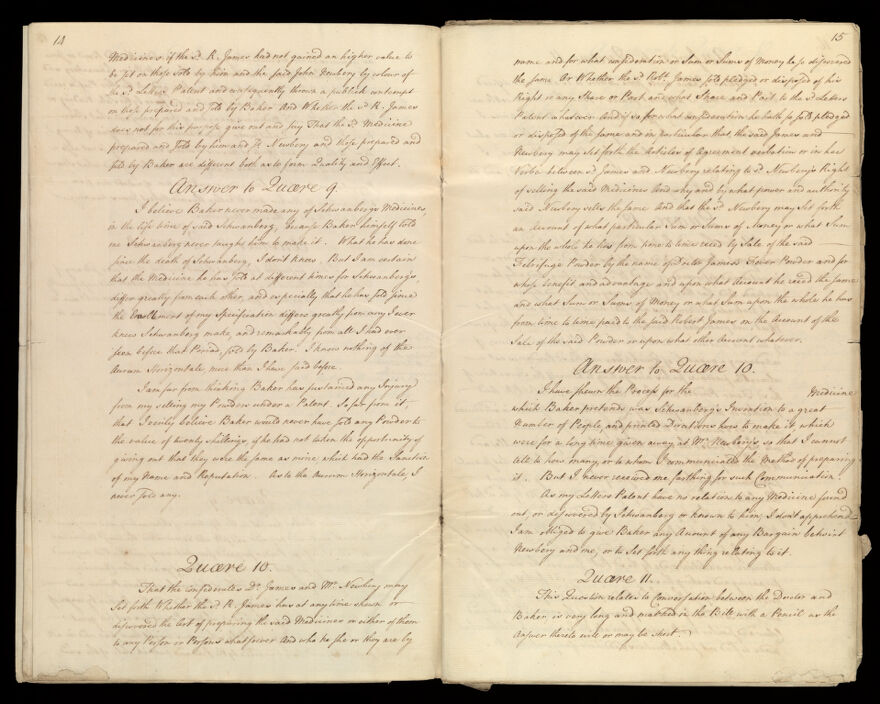 14
Medicines if the sd. R. James had not gained an higher value to
be set on those sold by him and the said John Newbery by colour of
the sd. Letters Patent and consequently thrown a publick contempt
on those prepared and sold by Baker And Whether the sd. R. James
does not for this purpose give out and say That the sd. Medicine
prepared and sold by him and sd. Newbery and those prepared and
sold by Baker are different both as to form Quality and Effect.
Answer to Quære 9.
I believe Baker never made any of Schwanberg's Medicines,
in the life time of said Schwanberg, because Baker himself told
me Schwanberg never taught him to make it. What he has done
since the death of Schwanberg, I don't know. But I am certain
that the Medicine he has sold at different times for Schwanberg's,
differ greatly from each other, and especially that he has sold since
the Enrollment of my Specification differs greatly from any I ever
knew Schwanberg make, and remarkably from all I had ever
seen before that Period, sold by Baker. I know nothing of the
Aurum Horizontale more than I have said before.
I am far from thinking Baker has sustained any Injury
from my selling my Powders under a Patent. So far from it,
that I verily believe Baker would never have sold any Powder to
the value of twenty shillings, if he had not taken the opportunity of
giving out that they were the same as mine which had the Sanction
of my Name and Reputation. As to the Aurum Horizontale, I
never sold any.
Quære 10.
That the confederates Dr. James and Mr. Newbery may
Set forth Whether the sd. R. James has at any time shewn or
discovered the Art of preparing the said Medicines or either of them
to any Person or Persons whatsoever And who he she or they are by
15
name and for what consideration or Sum or Sums of Money he so discovered
the same Or Whether the sd. Robt. James sold pledged or disposed of his
Right or any Share or Part and what Share and Part to the sd. Letters
Patent whatever And if so for what consideration he hath so sold pledged
or disposed of the same and in particular that the said James and
Newbery may Set forth the Articles of Agreement
between sd. James and Newbery relating to sd. Newbery's Right
of selling the said Medicines And why and by what power and authority
said Newbery sells the same And that the sd. Newbery may Set forth
an Account of what particular Sum or Sums of Money or what Sum
upon the whole he has from time to time reced by Sale of the said
Febrifuge Powder by the name of Doctor James's Fever Powder and for
whose benefit and advantage and upon what Account he reced the same
And what Sum or Sums of Money or what Sum upon the whole he has
from time to time paid to the said Robert James on the Account of the
Sale of the said Powder or upon what other Account whatever.
Answer to Quære 10.
I have shewn the Process for the Medicine
which Baker pretends was Schwanberg's Invention to a great
Number of People, and printed Directions how to make it, which
were for a long time given away at Mr. Newbery's, so that I cannot
tell to how many, or to whom I communicated the Method of preparing
it. But I never received one farthing for such Communication.
As my Letters Patent have no relation to any Medicine found
out, or discovered by Schwanberg or known to him, I don't apprehend
I am obliged to give Baker any Account of any Bargain betwixt
Newbery and me, or to Set forth any thing relating to it.
Quære 11.
This Question relates to Conversation between the Doctor and
Baker, is very long and marked in the Bill with a Pencil as the
Answer thereto will or may be short.